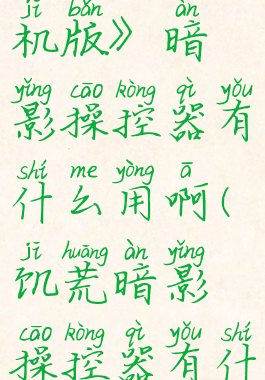 jī bǎn àn
机版》 暗
yǐng cāo kòng qì yǒu
影操控器有
shí me yòng ā
什么用啊(
jī huāng àn yǐng
饥荒暗影
cāo kòng qì yǒu shí
操控器有什